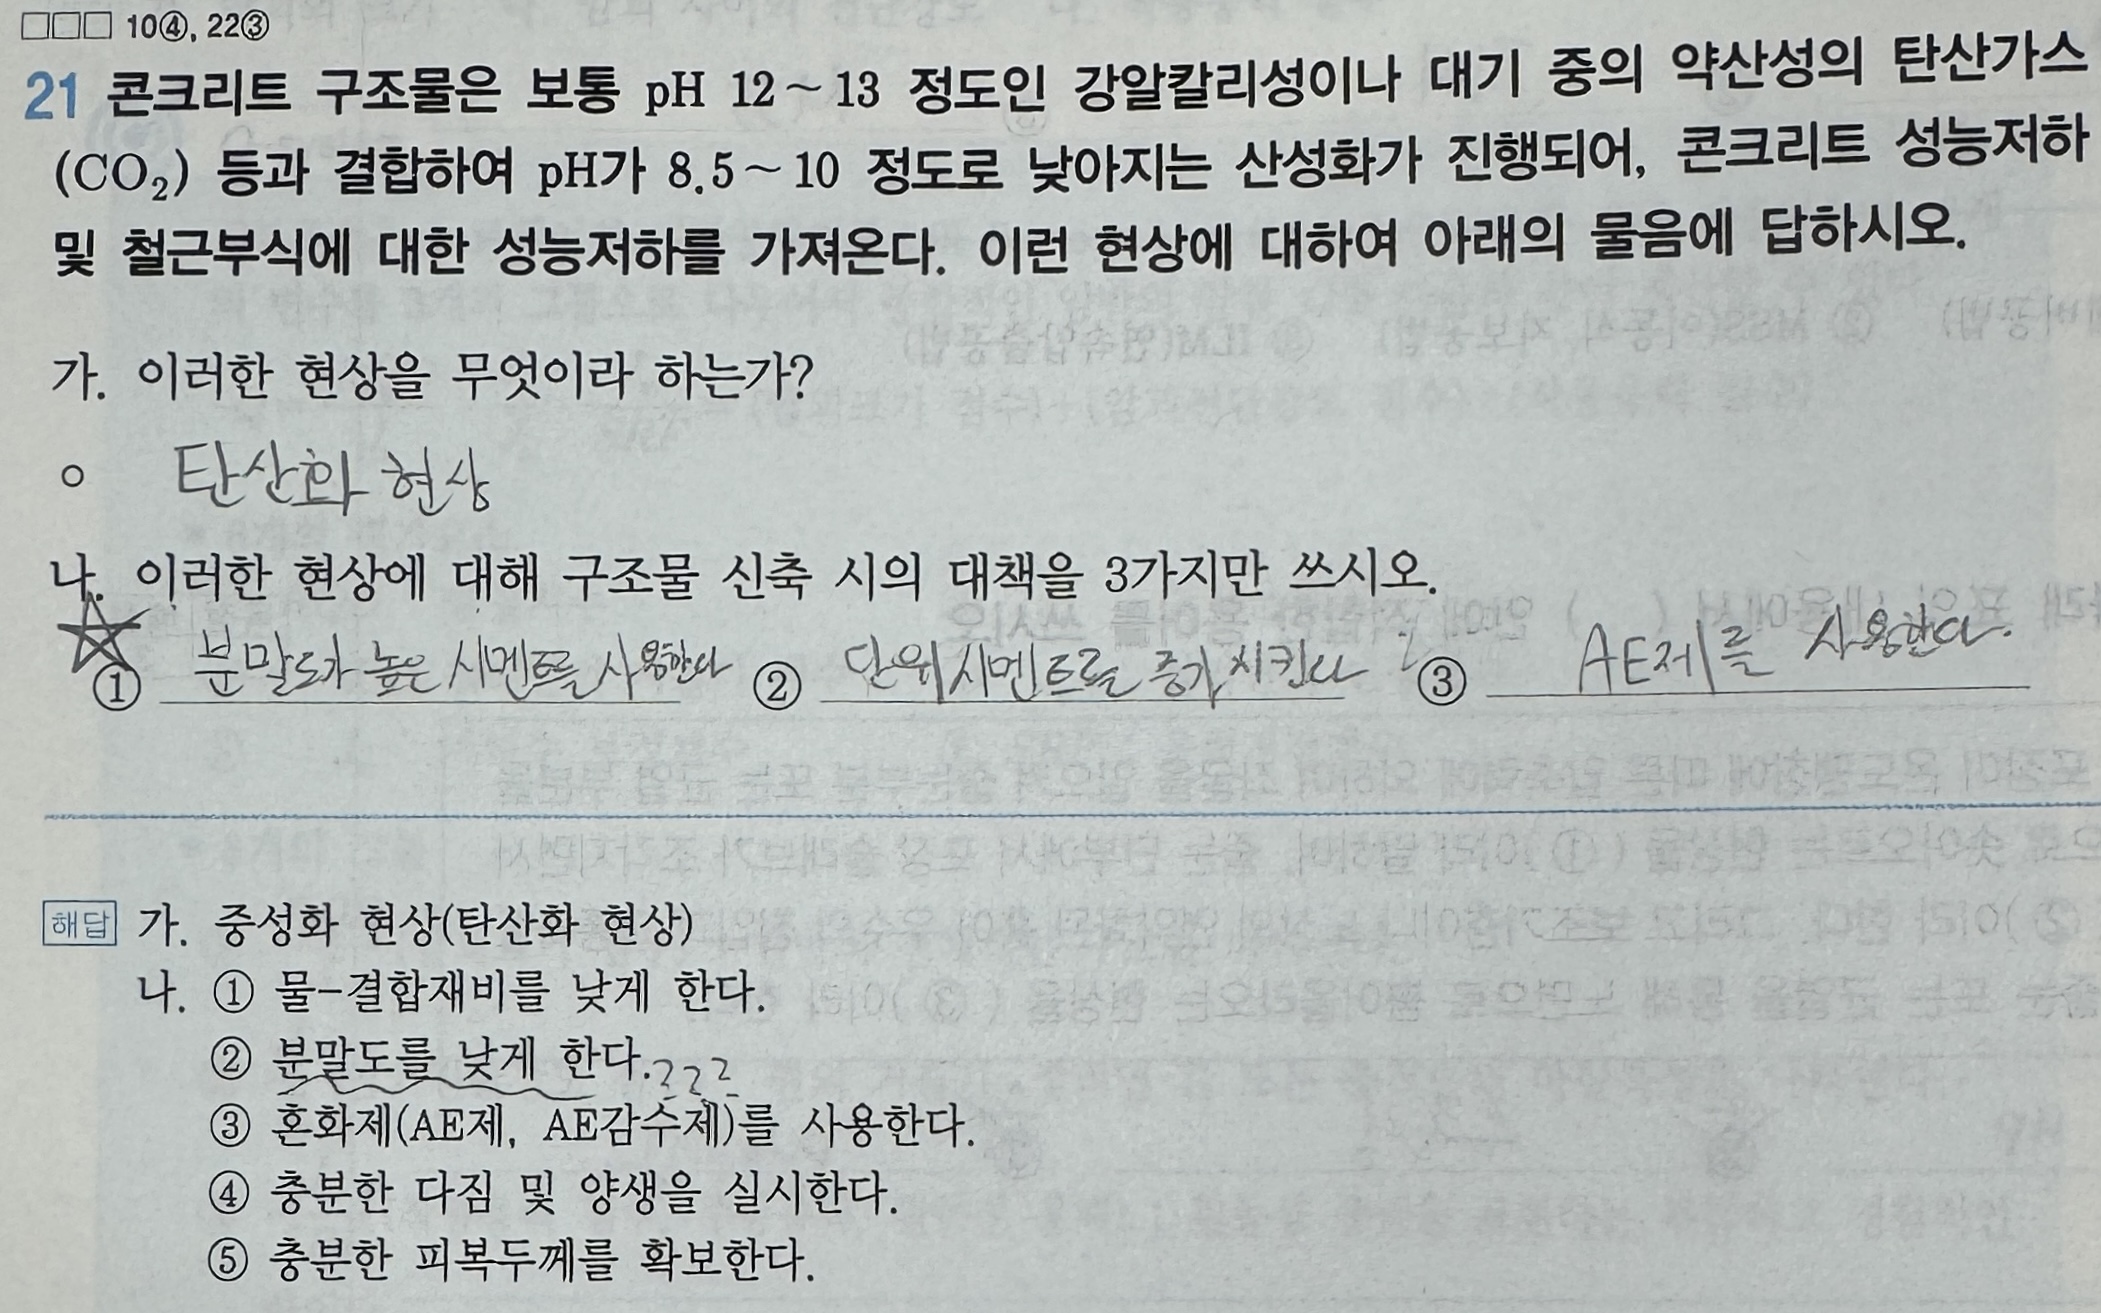 □□□ 10④, 22③
21 콘크리트 구조물은 보통 pH 12～13 정도인 강알칼리성이나 대기 중의 약산성의 탄산가스
(CO₂) 등과 결합하여 pH가 8.5～10 정도로 낮아지는 산성화가 진행되어, 콘크리트 성능저하
및 철근부식에 대한 성능저하를 가져온다. 이런 현상에 대하여 아래의 물음에 답하시오.
가. 이러한 현상을 무엇이라 하는가?
○ 탄산화 현상
나. 이러한 현상에 대해 구조물 신축 시의 대책을 3가지만 쓰시오.
① 분말도가 높은 시멘트를 사용한다 ② 단위시멘트를 증가시킨다 ③ AE제를 사용한다.
해답 가. 중성화 현상(탄산화 현상)
나. ① 물-결합재비를 낮게 한다.
② 분말도를 낮게 한다.???
③ 혼화제(AE제, AE감수제)를 사용한다.
④ 충분한 다짐 및 양생을 실시한다.
⑤ 충분한 피복두께를 확보한다.